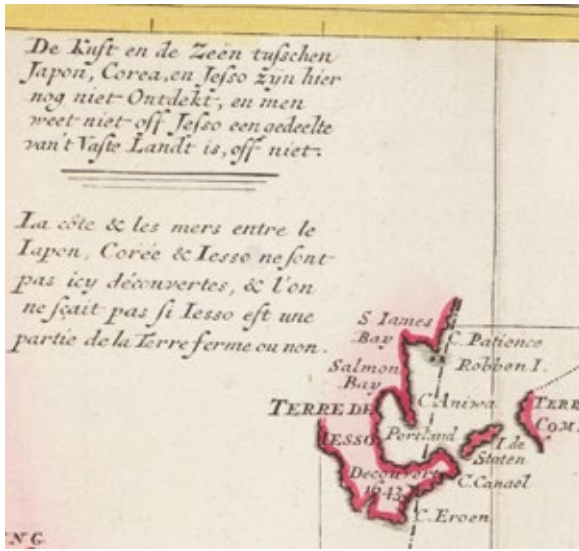 De Kuſt en de Zeën tuſſchen
Japon, Corea, en Jeſso zyn hier
nog niet Ontdekt, en men
weet niet off Jeſso een gedeelte
van't Vaſte Landt is, off niet.
La côte & les mers entre le
Iapon, Corée & Iesso ne ſont
pas icy découvertes, & l'on
ne ſçait pas ſi Iesso eſt une
partie de la Terre ferme ou non.
S. Iames
Bay
C. Patience
Robben I.
Salmon
Bay
C. Aniwa
TERRE DE
IESSO
Portland
I. de
Staten
TERR
COM
Decouvert
1643
C. Canael
C. Eroen
NG